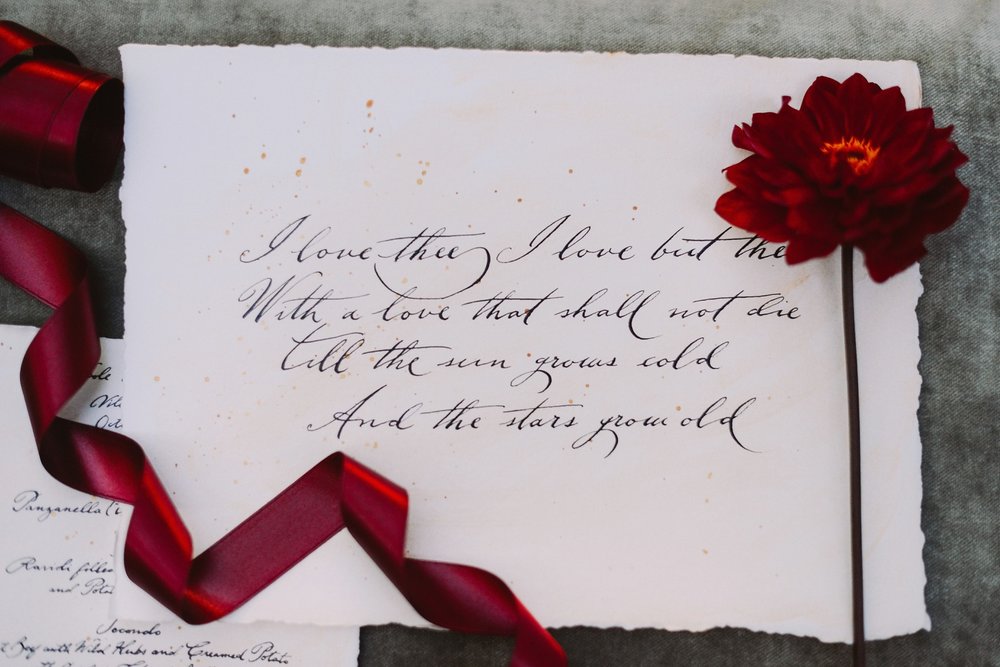 I love thee I love but the
With a love that shall not die
till the sun grows cold
And the stars grow old
Panzanella
and Pota
Secondo
with Wild Hubs and Creamed Potato